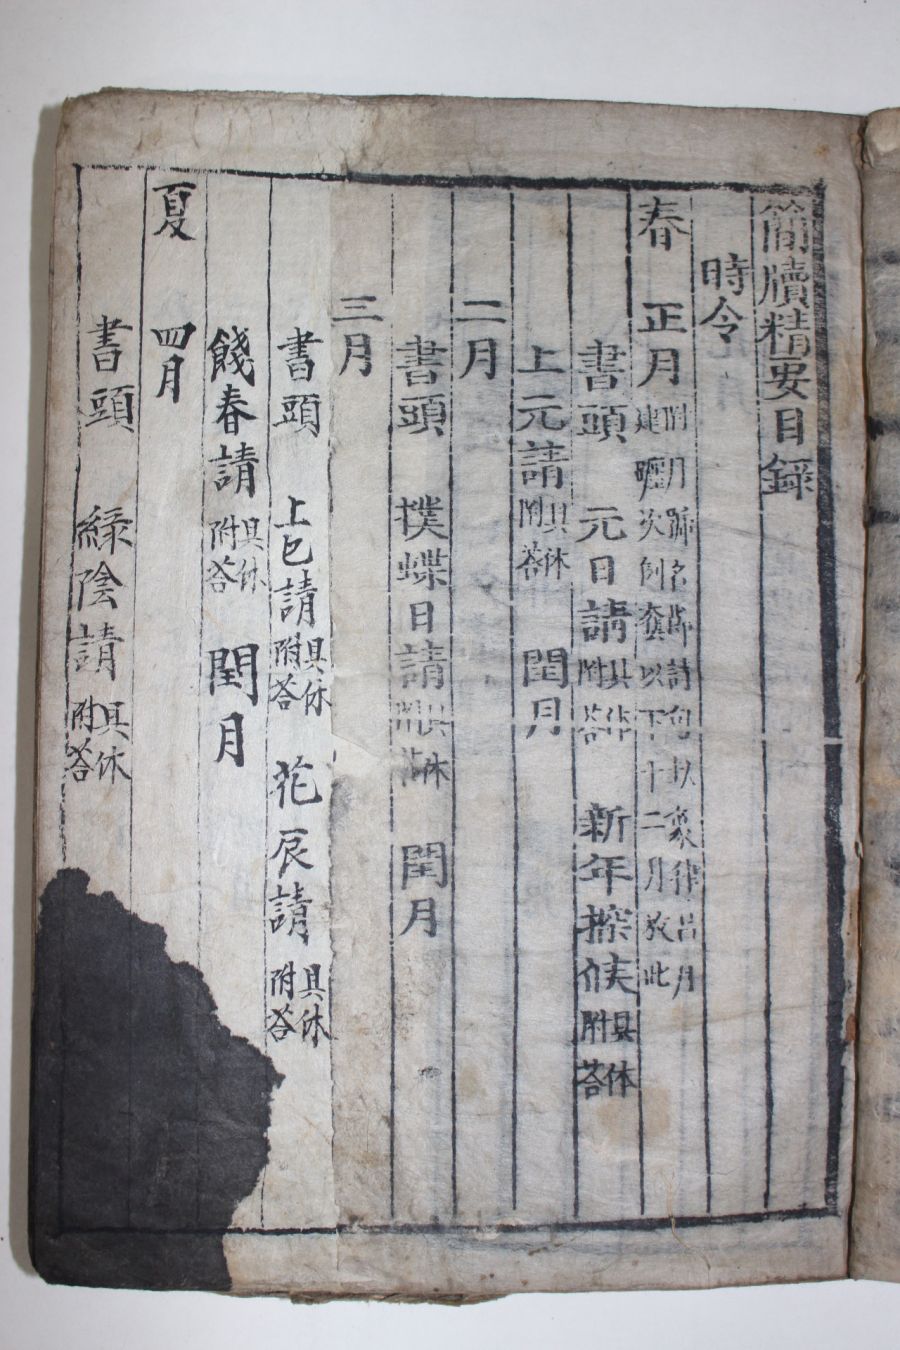 簡牘精要目錄
時令
春 正月 附月號名節詩句以衆律呂月建曆次例套以下十二月放此
書頭 元日請 具休附答 新年探候 具体附答
上元請 具休附答 閏月
二月
書頭 撲蝶日請 具休附答 閏月
三月
書頭 上巳請 具休附答 花辰請 具休附答
餞春請 具休附答 閏月
夏 四月
書頭 綠陰請 具休附答